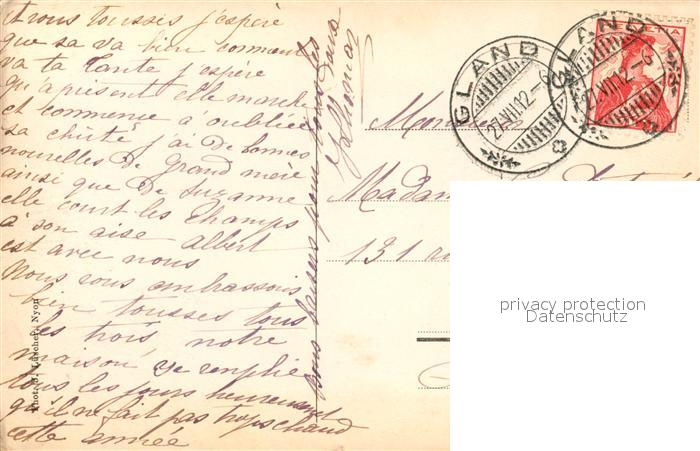 et vous toussis j'espère
que sa va bien comment
va ta tante j'espère
qu'a présent elle marche
et commence a oubliée
sa chûte j'ai De bonnes
nouvelles De grand mère
ainsi que De Suzanne
elle court les champs
a son aise Albert
est avec nous
Nous vous embrassons
bien tousses tous
les trois notre
maison ce remplie
tous les jours heureusement
qu'il ne fait pas trops chaud
cette année
Bons baisers pour tous
Phot. J. Luscher, Nyon
GLAND
27.VII.12.-6
GLAND
27.VII.12.-6
Monsieur
Madam
131
privacy protection
Datenschutz